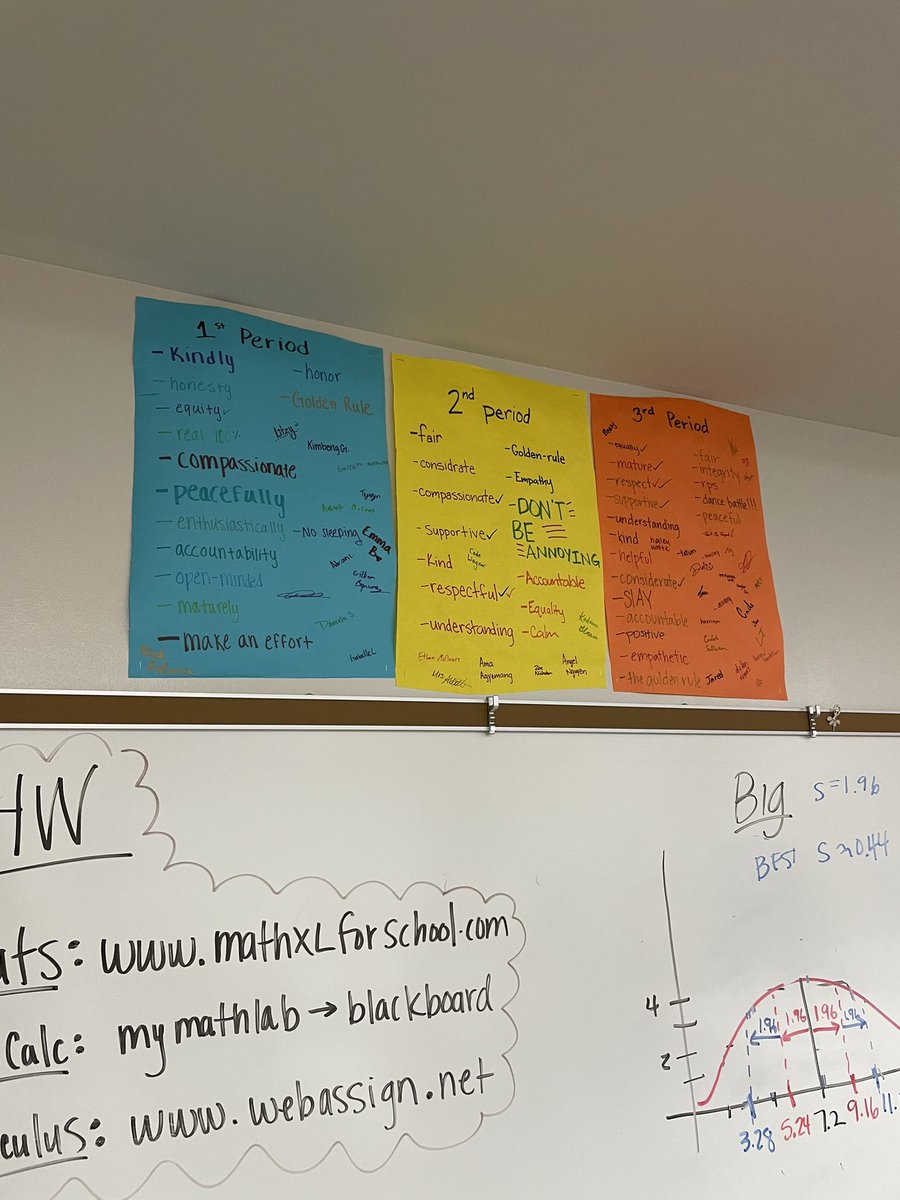 1st Period
- Kindly
- honesty
- equity ✓
- real 100%
- compassionate
- peacefully
- enthusiastically
- accountability
- open-minded
- maturely
- make an effort
- honor
- Golden Rule
Kimberly G.
- No sleeping
Emma B
Daniela S
Isabelle L
2nd period
- fair
- considrate
- compassionate ✓
- Supportive ✓
- Kind
- respectful ✓✓
- understanding
- Golden-rule
- Empathy
- DON'T
BE
ANNOYING
- Accountable
- Equality
- Calm
Ama
Agyemang
Angel
Nguyen
3rd Period
- equally ✓
- mature ✓
- respect ✓✓
- supportive ✓
- understanding
- kind
- helpful
- considerate ✓
- SLAY
- accountable
- positive
- empathetic
- the golden rule
- fair
- integrity
- rps
- dance battle!!!
- peaceful
Jared
HW
ats: www.mathXLforschool.com
Calc: mymathlab → blackboard
culus: www.webassign.net
Big S=1.96
BEST S≈0.44
4
2
1.96 1.96 1.96 1.96
3.28 5.24 7.2 9.16 11.